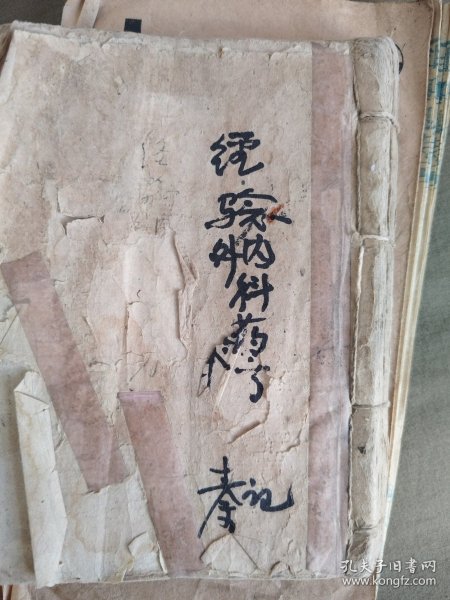 經验内外科药方
秦记
孔夫子旧书网
www.kongfz.com